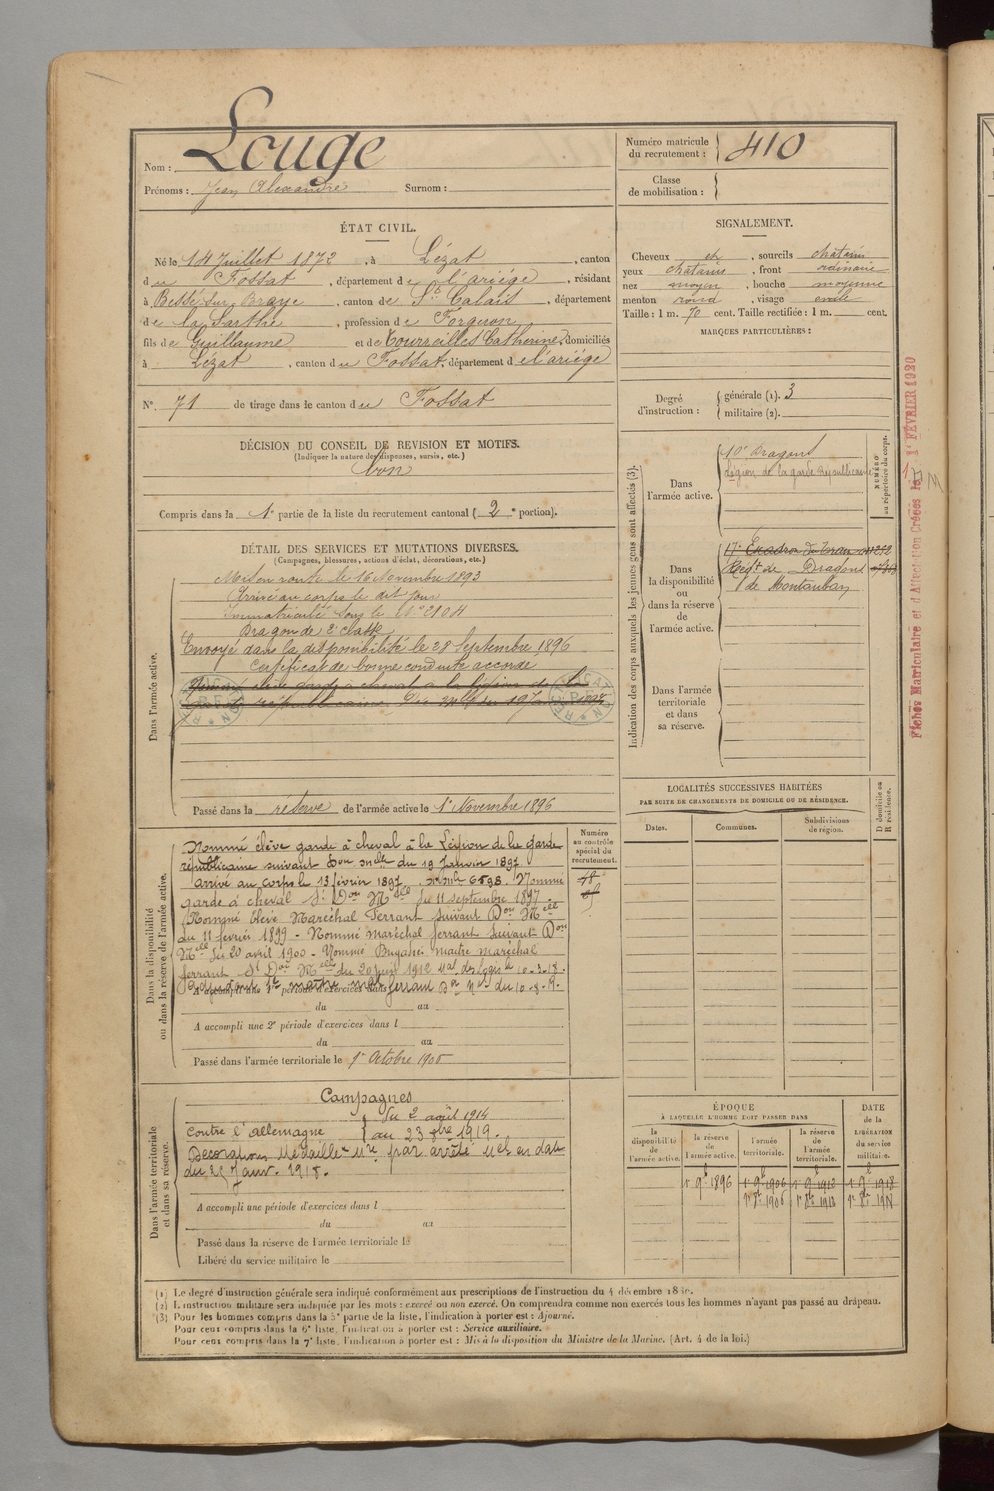 Nom : Louge
Prénoms : Jean Alexandre Surnom :
Numéro matricule du recrutement : 410
Classe de mobilisation :
ÉTAT CIVIL.
Né le 14 Juillet 1872, à Lézat, canton
du Fossat, département de l'ariège, résidant
à Bessé-sur-Braye, canton de St Calais, département
de la Sarthe, profession de Forgeron
fils de Guillaume et de Tourreilles Catherine, domiciliés
à Lézat, canton du Fossat, département de l'ariége
N° 71 de tirage dans le canton du Fossat
SIGNALEMENT.
Cheveux ch, sourcils chatains
yeux chatains, front ordinaire
nez moyen, bouche moyenne
menton rond, visage ovale
Taille : 1 m. 70 cent. Taille rectifiée : 1 m. cent.
MARQUES PARTICULIÈRES :
Degré d'instruction : générale (1). 3
militaire (2).
DÉCISION DU CONSEIL DE REVISION ET MOTIFS.
(Indiquer la nature des dispenses, sursis, etc.)
Bon
Compris dans la 1e partie de la liste du recrutement cantonal (2e portion).
DÉTAIL DES SERVICES ET MUTATIONS DIVERSES.
(Campagnes, blessures, actions d'éclat, décorations, etc.)
Dans l'armée active.
Mis en route le 16 Novembre 1893
Arrivé au corps le dit jour
Immatriculé sous le N° 2104
Dragon de 2e classe
Envoyé dans la disponibilité le 28 Septembre 1896
Certificat de bonne conduite accordé
Nommé élève garde à cheval à la légion de la
garde républicaine Don Mlle du 19 Janvier 1897
Passé dans la réserve de l'armée active le 1er Novembre 1896
Indication des corps auxquels les jeunes gens sont affectés (3).
NUMÉRO au répertoire du corps.
Dans l'armée active.
10e Dragons
Légion de la garde républicaine
Dans la disponibilité ou dans la réserve de l'armée active.
17e Escadron du Train
Regt de Dragons
de Montauban
Dans l'armée territoriale et dans sa réserve.
Fiches Matriculaire et d'Affectation Créées le 1r FÉVRIER 1920
Dans la disponibilité ou dans la réserve de l'armée active.
Numéro au contrôle spécial du recrutement.
Nommé élève garde à cheval à la Légion de la garde
républicaine suivant Don Mlle du 19 Janvier 1897
arrivé au corps le 13 février 1897. No Mle 6598. Nommé
garde à cheval St Don Mlle du 11 septembre 1897.
Nommé Elève Maréchal Ferrant suivant Don Mell
du 11 fevrier 1899 - Nommé maréchal ferrant suivant Don
Mell du 20 avril 1900 - Nommé Brigadier maître maréchal
ferrant St Don Mell du 20 Juin 1912 Mal des logis le 10-3-18.
A accompli une 1re période d'exercices dans l
du au
A accompli une 2e période d'exercices dans l
du au
Passé dans l'armée territoriale le 1er Octobre 1906
Dans l'armée territoriale et dans sa réserve.
Campagnes
Contre l'allemagne du 2 août 1914
au 23 8bre 1919.
Decoration Médaille Mre par arrêté Mel en date
du 25 Janv. 1918.
A accompli une période d'exercices dans l
du au
Passé dans la réserve de l'armée territoriale le
Libéré du service militaire le
LOCALITÉS SUCCESSIVES HABITÉES
PAR SUITE DE CHANGEMENTS DE DOMICILE OU DE RÉSIDENCE.
Dates. Communes. Subdivisions de région. D domicile ou R résidence.
ÉPOQUE
À LAQUELLE L'HOMME DOIT PASSER DANS
la disponibilité de l'armée active. la réserve de l'armée active. l'armée territoriale. la réserve de l'armée territoriale.
DATE de la LIBÉRATION du service militaire.
1r 9e 1896 1r 9e 1906 1r 9e 1912 1r 9e 1918
1r 8e 1906 1r 8e 1912 1r 8e 1918
(1) Le degré d'instruction générale sera indiqué conformément aux prescriptions de l'instruction du 4 décembre
(2) L'instruction militaire sera indiquée par les mots : exercé ou non exercé. On comprendra comme non exercés tous les hommes n'ayant pas passé au drapeau.
(3) Pour les hommes compris dans la 5e partie de la liste, l'indication à porter est : Ajourné.
Pour ceux compris dans la 6e liste, l'indication à porter est : Service auxiliaire.
Pour ceux compris dans la 7e liste, l'indication à porter est : Mis à la disposition du Ministre de la Marine. (Art. 4 de la loi.)